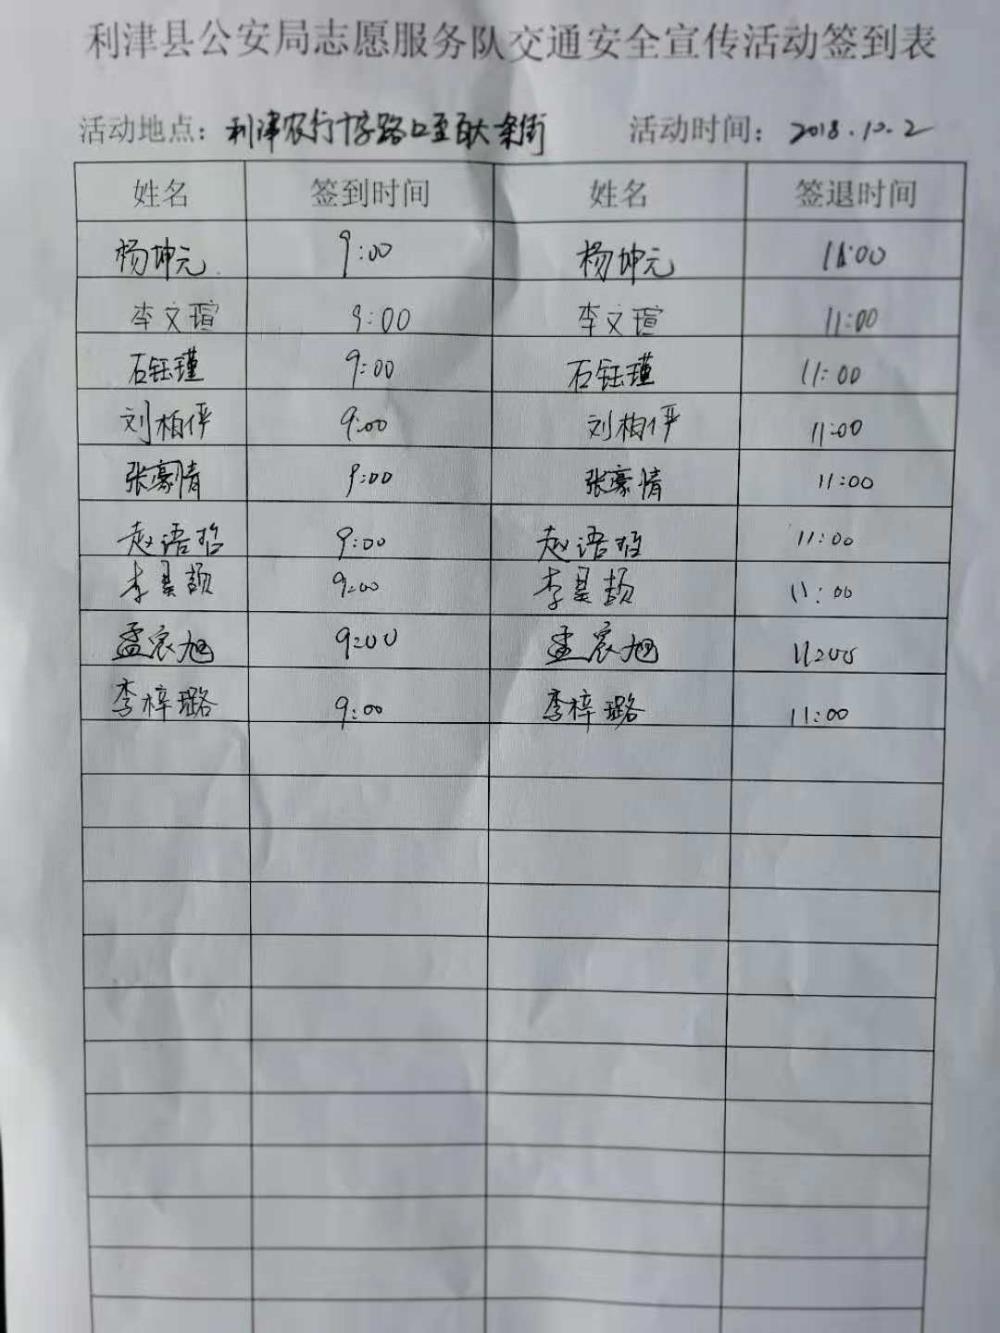 利津县公安局志愿服务队交通安全宣传活动签到表
活动地点：利津农行十字路口至百大条街 活动时间：2018.10.2
姓名 签到时间 姓名 签退时间
杨坤元 9:00 杨坤元 11:00
李文瑄 9:00 李文瑄 11:00
石钰瑾 9:00 石钰瑾 11:00
刘柏伻 9:00 刘柏伻 11:00
张豪情 9:00 张豪情 11:00
赵语晗 9:00 赵语晗 11:00
李昊颉 9:00 李昊颉 11:00
孟宸旭 9:00 孟宸旭 11:00
李梓璐 9:00 李梓璐 11:00